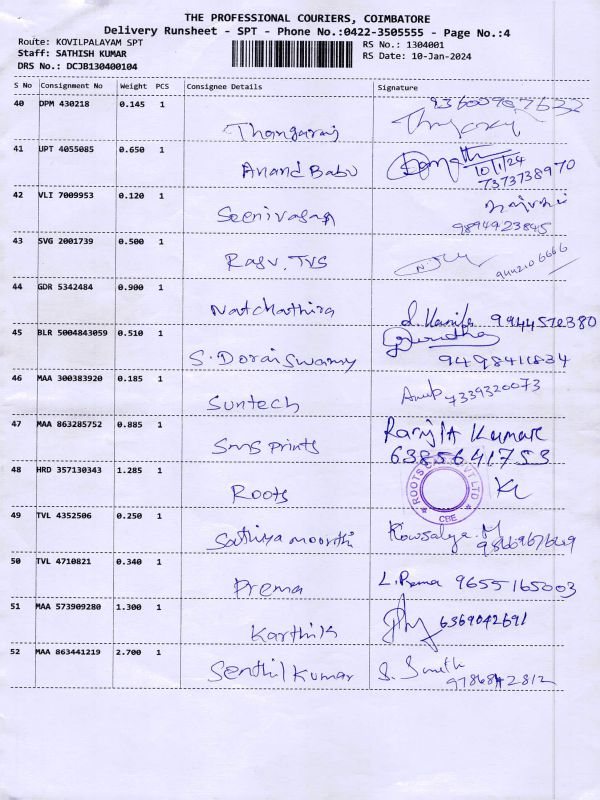 THE PROFESSIONAL COURIERS, COIMBATORE
Delivery Runsheet - SPT - Phone No.:0422-3505555 - Page No.:4
Route: KOVILPALAYAM SPT
Staff: SATHISH KUMAR
DRS No.: DCJB130400104
RS No.: 1304001
RS Date: 10-Jan-2024
S No Consignment No Weight PCS Consignee Details Signature
40 DPM 430218 0.145 1
Thangaraj
41 UPT 4055085 0.650 1
Anand Babu
10/1/24
7373738970
42 VLI 7009953 0.120 1
Seenivasan
9894923845
43 SVG 2001739 0.500 1
Raju. TVS
944210 6666
44 GDR 5342484 0.900 1
Natchathira
9944572380
45 BLR 5004843059 0.510 1
S. Doraiswamy
9498411834
46 MAA 300383920 0.185 1
Suntech
7339320073
47 MAA 863285752 0.885 1
Sms prints
Ranjit Kumar
6385641753
48 HRD 357130343 1.285 1
Roots
ROOTS
PVT LTD
CBE
49 TVL 4352506 0.250 1
Sathiya moorthi
Kowsalya. M
50 TVL 4710821 0.340 1
Prema
L. Prema 9655165003
51 MAA 573909280 1.300 1
Karthik
6369042691
52 MAA 863441219 2.700 1
Senthil Kumar
S. Smith
9786842812